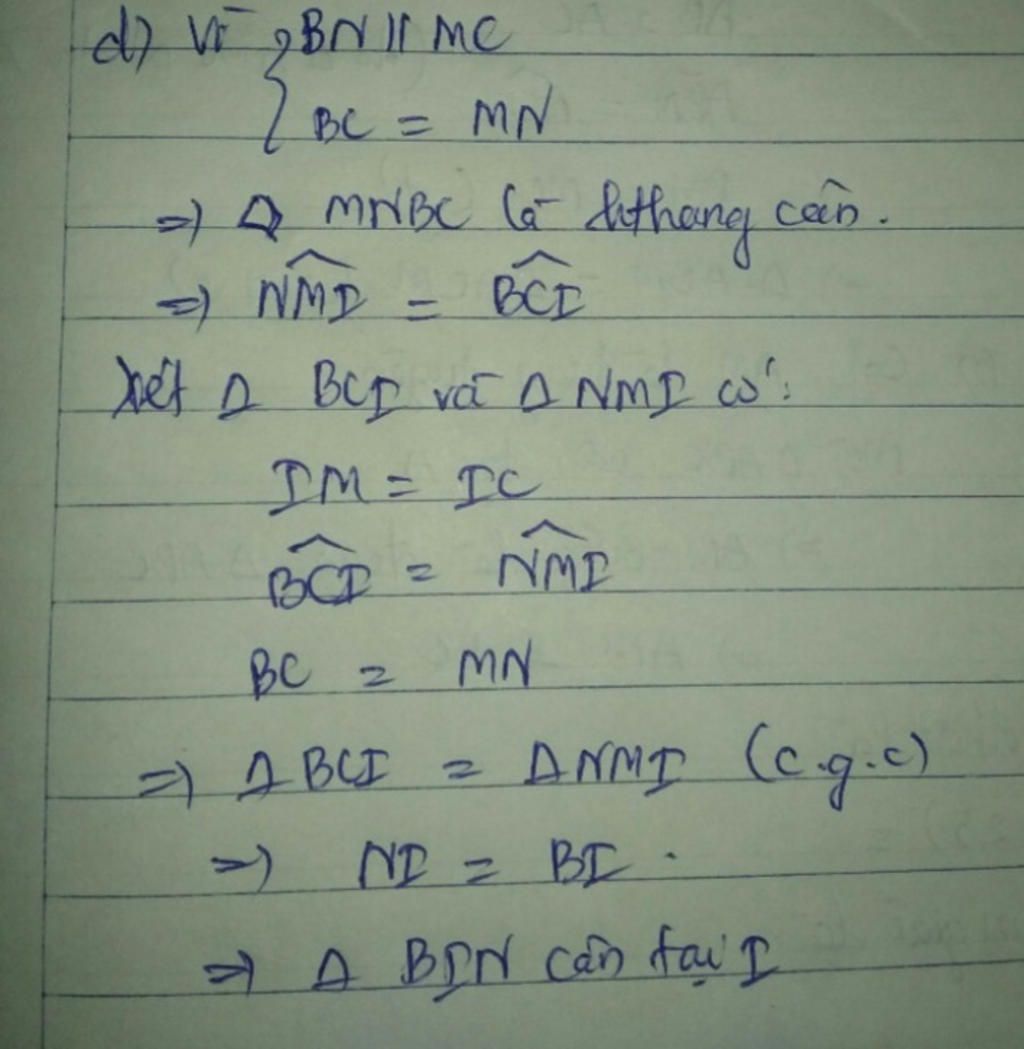 d) Vì { BN // MC
BC = MN
=> ◇ MNBC là hthang cân.
=> \widehat{NMI} = \widehat{BCI}
Xét Δ BCI và Δ NMI có:
IM = IC
\widehat{BCI} = \widehat{NMI}
BC = MN
=> Δ BCI = Δ NMI (c.g.c)
=> NI = BI.
=> Δ BIN cân tại I